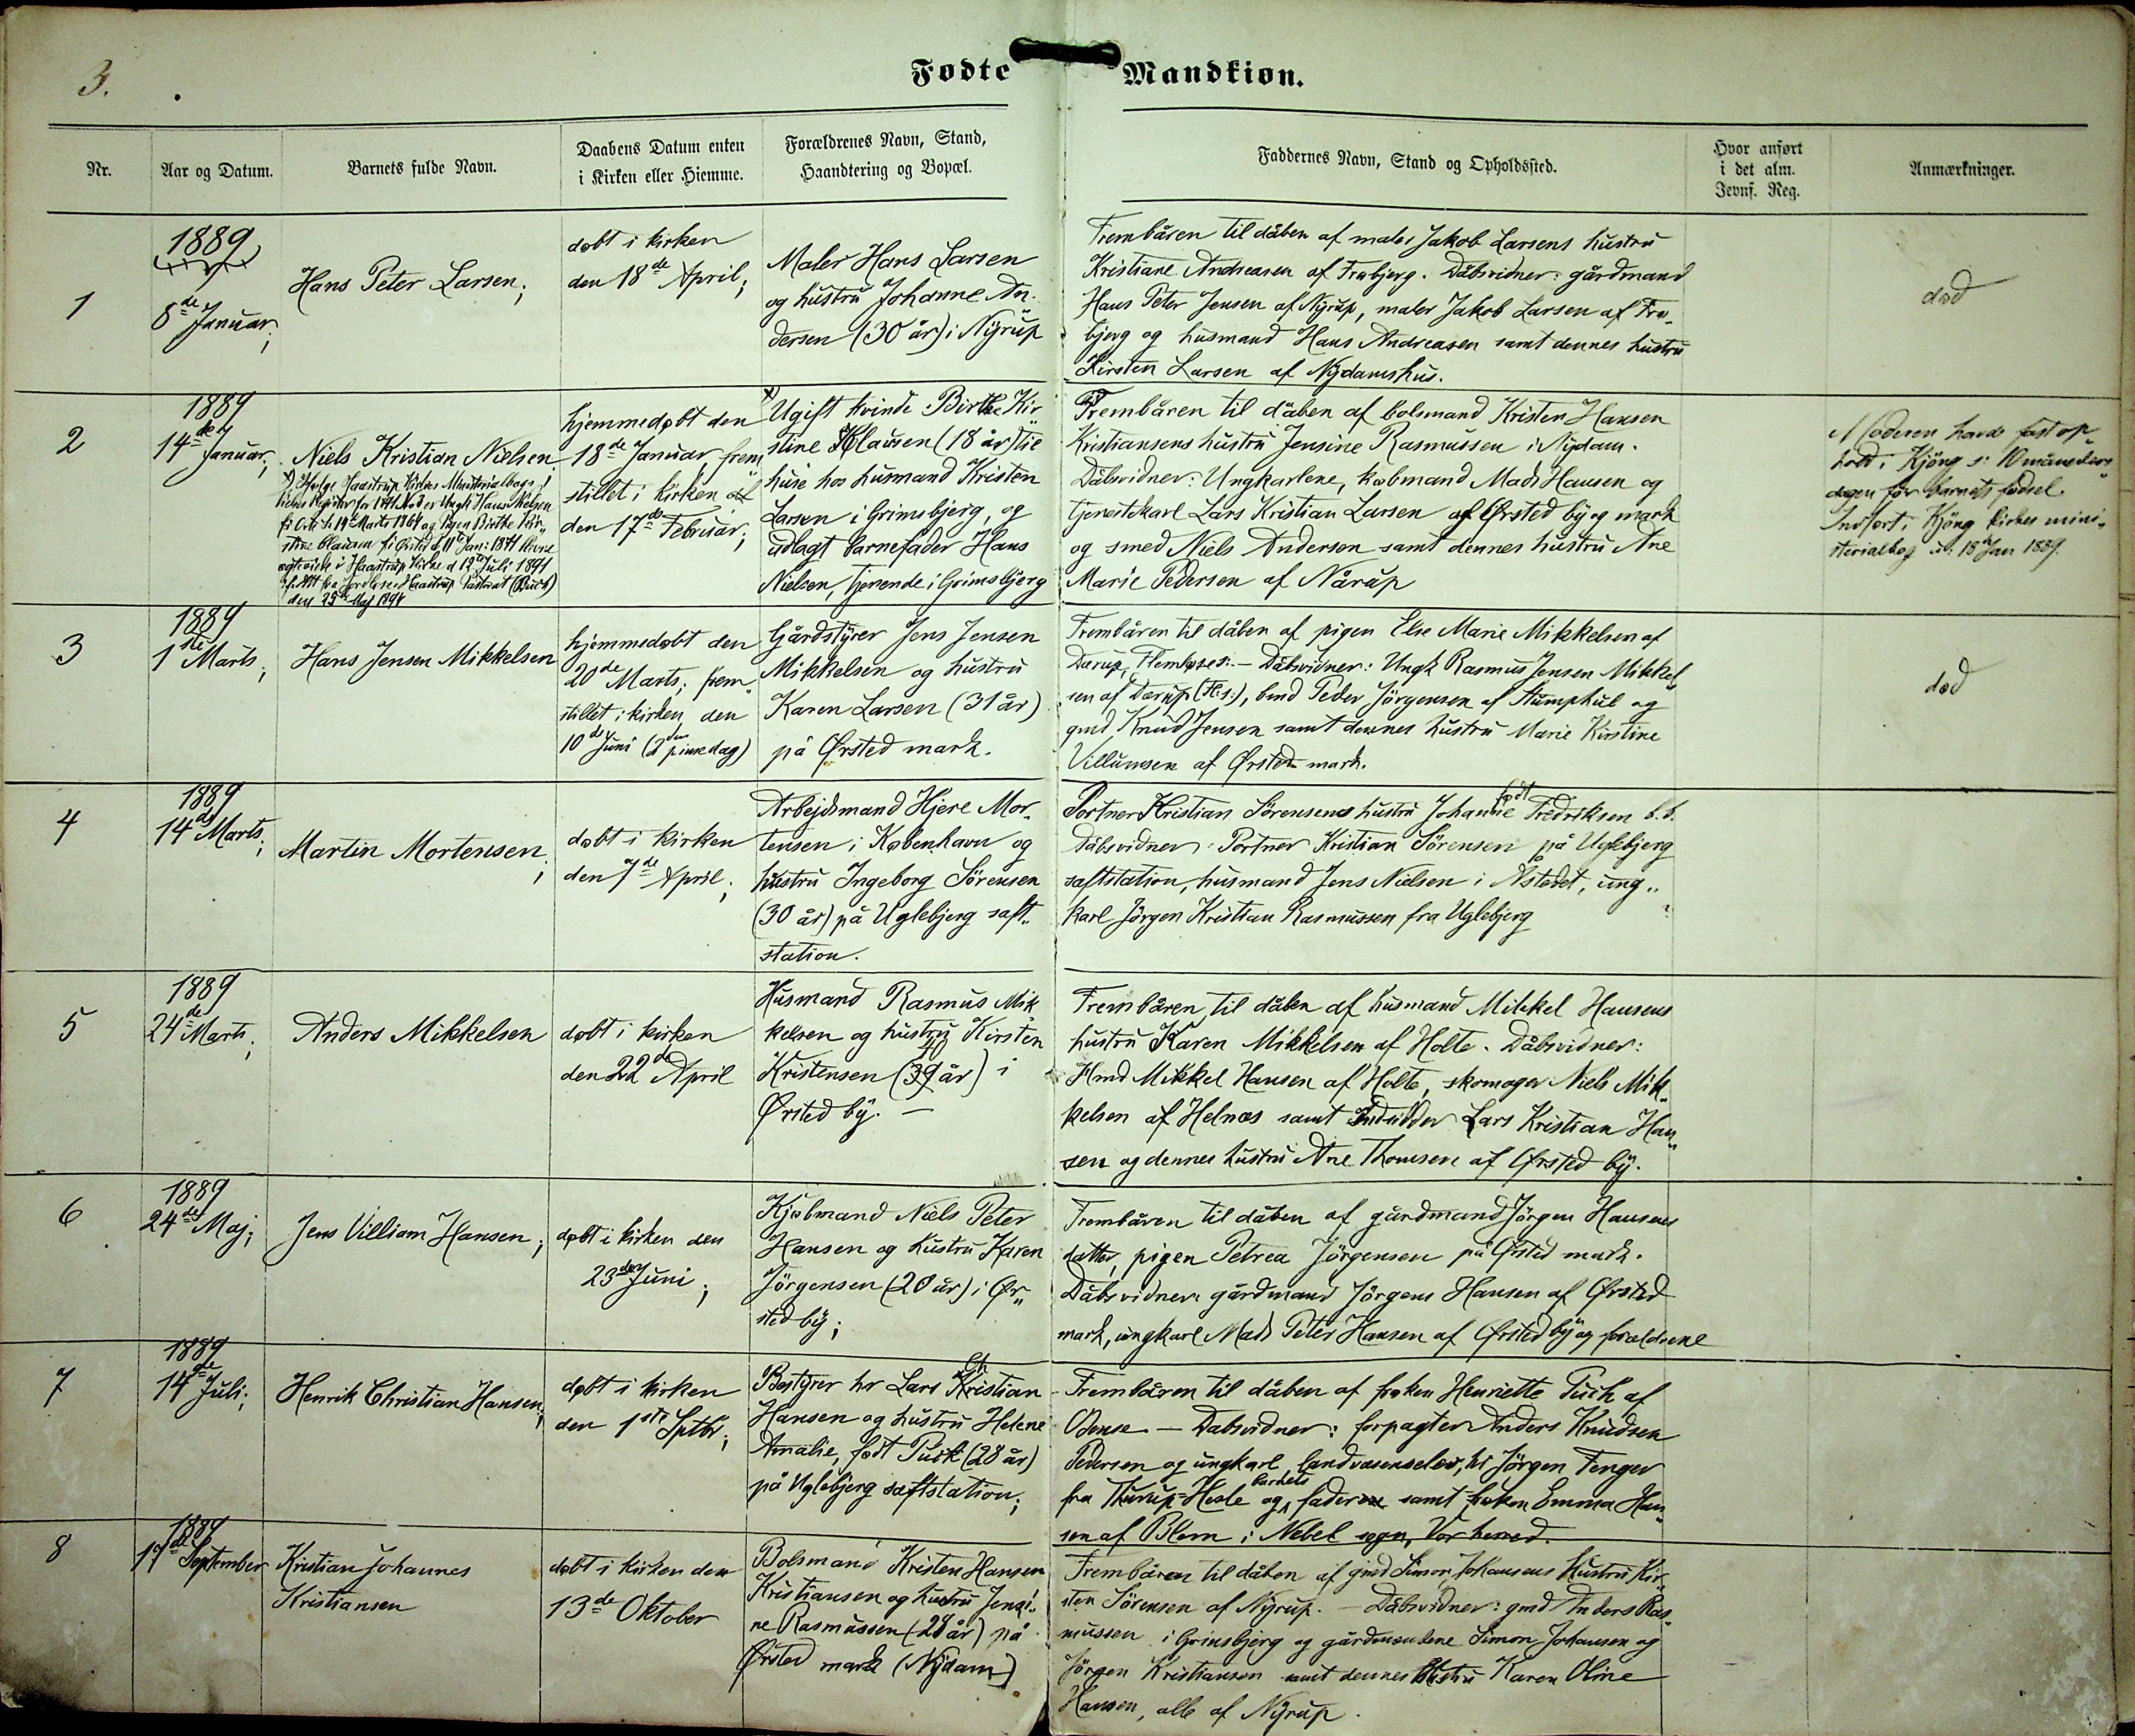 3.
Fødte Mandkiøn.
Nr.
Aar og Datum.
Barnets fulde Navn.
Daabens Datum enten
i Kirken eller Hiemme.
Forældrenes Navn, Stand,
Haandtering og Bopæl.
Faddernes Navn, Stand og Opholdssted.
Hvor anført
i det alm.
Jevnf. Reg.
Anmærkninger.
1
1889
8de Januar;
Hans Peter Larsen;
døbt i kirken
den 18de April;
Maler Hans Larsen
og hustru Johanne An-
dersen (30 år) i Nyrup
Frembåren til dåben af maler Jakob Larsens hustru
Kristiane Andreasen af Frøbjerg. Dåbsvidner: gårdmand
Hans Peter Jensen af Nyrup, maler Jakob Larsen af Frø-
bjerg og husmand Hans Andreasen samt dennes hustru
Kirsten Larsen af Nydamshus.
død
2
1889
14de Januar;
Niels Kristian Nielsen
x) Ifølge Haastrup Kirkes Ministerialbogs
den 25de Maj 1894
hjemmedøbt den
18de Januar, frem
stillet i kirken
den 17de Februar;
x) Ugift kvinde Birthe Kir
stine Klausen (18 år) til
huse hos husmand Kristen
Larsen i Grimsbjerg, og
udlagt barnefader Hans
Nielsen, tjenende i Grimsbjerg
Frembåren til dåben af bolsmand Kristen Hansen
Kristiansens hustru Jensine Rasmussen i Nydam.
Dåbsvidner: Ungkarlene, købmand Mads Hansen og
tjenestekarl Lars Kristian Larsen af Ørsted by og mark
og smed Niels Andersen samt dennes hustru Ane
Marie Pedersen af Nårup
Moderen havde fast op-
hold i Kjöng s: 10 måneders
dagen før barnets fødsel.
Indført i Kjöng kirkes mini-
sterialbog d: 18 Jan 1889.
3
1889
1ste Marts;
Hans Jensen Mikkelsen
hjemmedøbt den
20de Marts; frem-
stillet i kirken den
10de Juni (2den pinsedag)
Gårdstyrer Jens Jensen
Mikkelsen og hustru
Karen Larsen (31 år)
på Ørsted mark.
Frembåren til dåben af pigen Else Marie Mikkelsen af
Dærup, Flemløse s: - Dåbsvidner: Ungk Rasmus Jensen Mikkel
sen af Dærup (Fl: s:), bmd Peder Jörgensen af Stumphul og
gmd Knud Jensen samt dennes hustru Marie Kirstine
Villumsen af Ørsted mark.
død
4
1889
14de Marts;
Martin Mortensen;
døbt i kirken
den 7de April;
Arbejdsmand Hjere Mor-
tensen i København og
hustru Ingeborg Sörensen
(30 år) på Uglebjerg saft-
station.
Portner Kristian Sörensens hustru Johanne født Fredriksen b. b.
Dåbsvidner: Portner Kristian Sörensen på Uglebjerg
saftstation, husmand Jens Nielsen i Åstedet, ung-
karl Jörgen Kristian Rasmussen fra Uglebjerg
5
1889
24de Marts;
Anders Mikkelsen
døbt i kirken
den 22de April
Husmand Rasmus Mik
kelsen og hustru Kirsten
Kristensen (39 år) i
Ørsted by. -
Frembåren til dåben af husmand Mikkel Hansens
hustru Karen Mikkelsen af Holte. Dåbsvidner:
Hmd Mikkel Hansen af Holte, skomager Niels Mik-
kelsen af Helnæs samt Indsidder Lars Kristian Han-
sen og dennes hustru Ane Thomsen af Ørsted by.
6
1889
24de Maj;
Jens Villiam Hansen;
døbt i kirken den
23de Juni;
Kjøbmand Niels Peter
Hansen og hustru Karen
Jörgensen (20 år) i Ør-
sted by;
Frembåren til dåben af gårdmand Jörgen Hansens
datter, pigen Petrea Jörgensen på Ørsted mark.
Dåbsvidner: gårdmand Jörgen Hansen af Ørsted
mark, ungkarl Mads Peter Hansen af Ørsted by og forældrene
7
1889
14de Juli;
Henrik Christian Hansen;
døbt i kirken
den 1ste Sptbr;
Bestyrer hr Lars Christian
Hansen og hustru Helene
Amalie, født Puck (28 år)
på Uglebjerg saftstation;
Frembåren til dåben af frøken Henriette Puck af
Odense - Dåbsvidner: forpagter Anders Knudsen
Pedersen og ungkarl, landvæsenselev, hr Jörgen Fenger
fra Thurup-Hesle og barnets fader samt frøken Emma Han-
sen af Blem i Nebel sogn, Vor herred.
8
1889
17de September
Kristian Johannes
Kristiansen
døbt i kirken den
13de Oktober
Bolsmand Kristen Hansen
Kristiansen og hustru Jensi-
ne Rasmussen (28 år) på
Ørsted mark (Nydam)
Frembåren til dåben af gmd Simon Johansens hustru Kir-
sten Sörensen af Nyrup. - Dåbsvidner: gmd Anders Ras-
mussen i Grimsbjerg og gårdmændene Simon Johansen og
Jörgen Kristiansen samt dennes hustru Karen Oline
Hansen, alle af Nyrup.